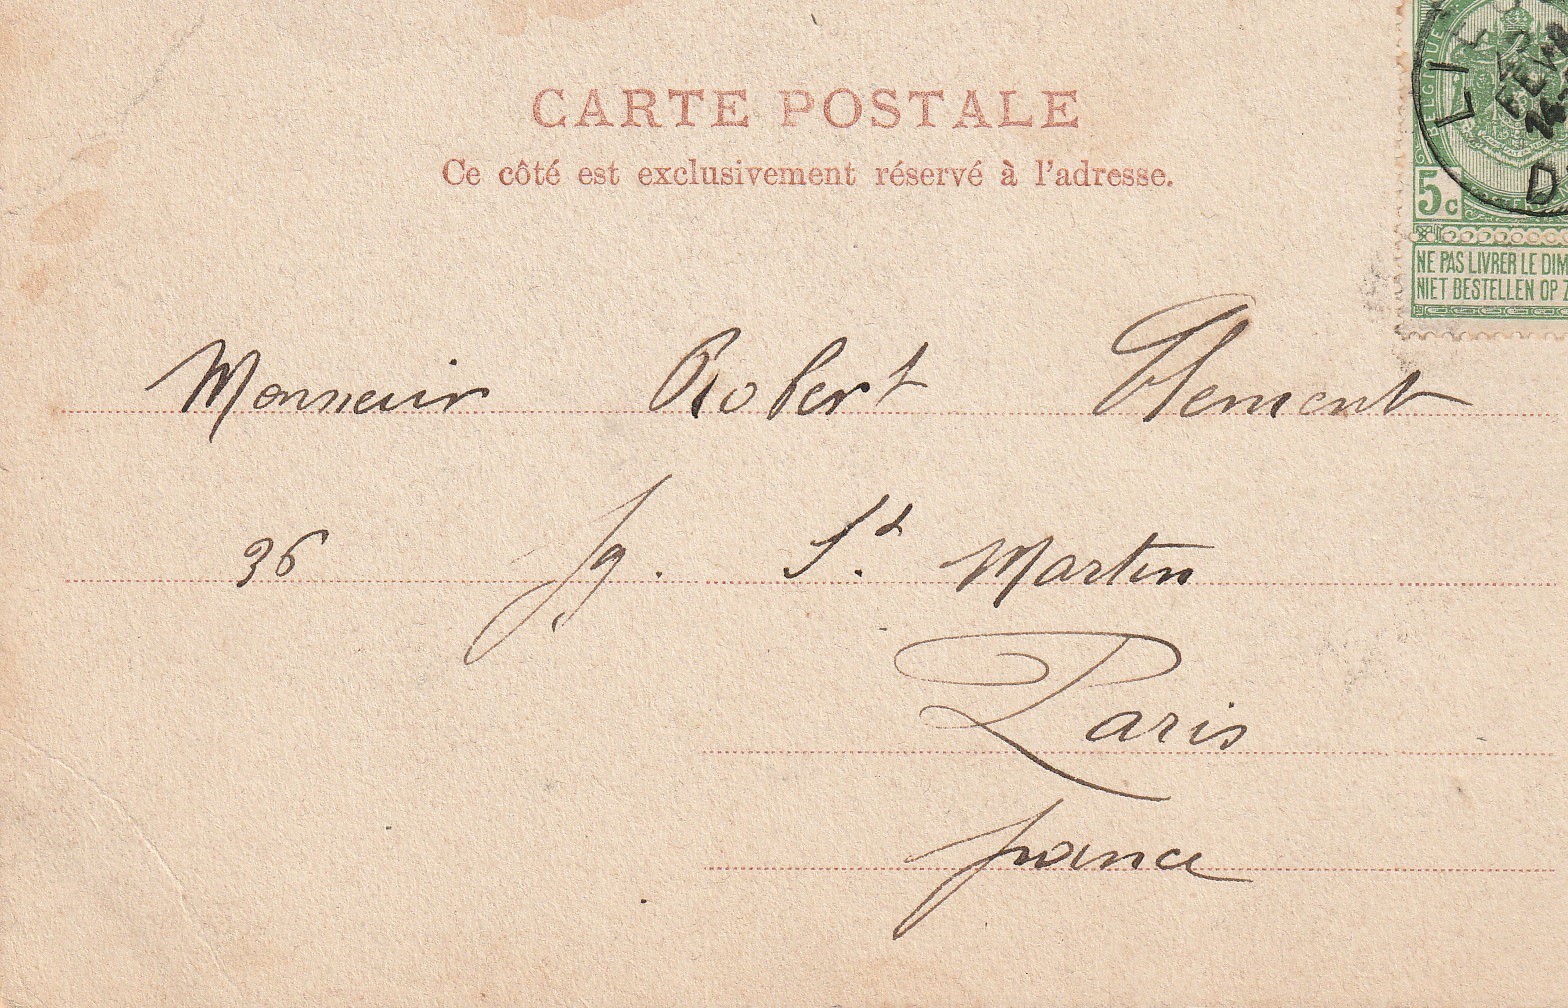 CARTE POSTALE
Ce côté est exclusivement réservé à l'adresse.
5c
NE PAS LIVRER LE DIM
NIET BESTELLEN OP Z
Monsieur Robert Clement
36 fg. St. Martin
Paris
france